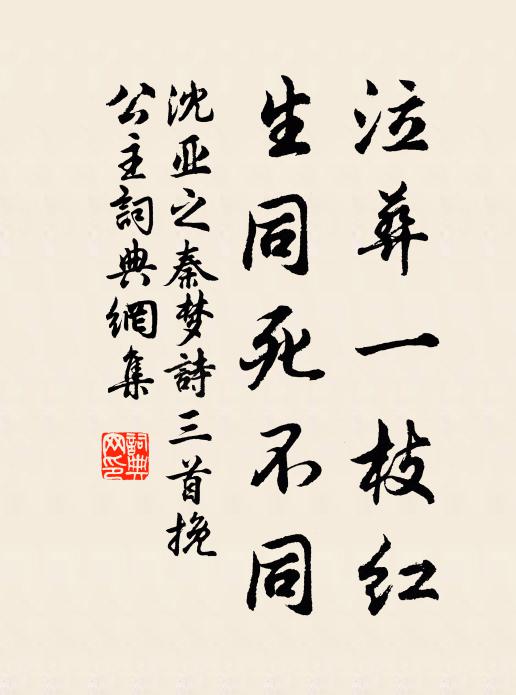 泣葬一枝红
生同死不同
沈亚之秦梦詩三首挽
公主詞典網集
詞典
网印